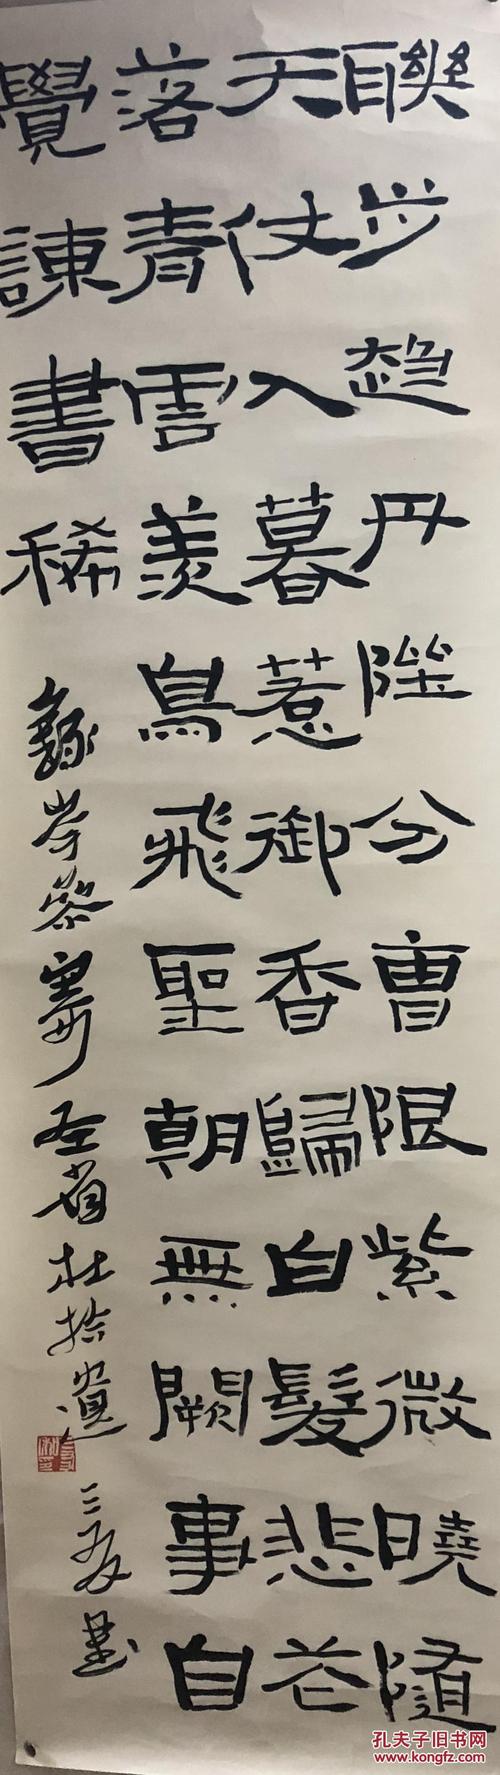 聯步趨丹陛分曹限紫微曉隨
天仗入暮惹御香歸白髮悲花
落青雲羨鳥飛聖朝無闕事自
覺諫書稀
錄岑參寄左省杜拾遺
孔夫子旧书网
www.kongfz.com